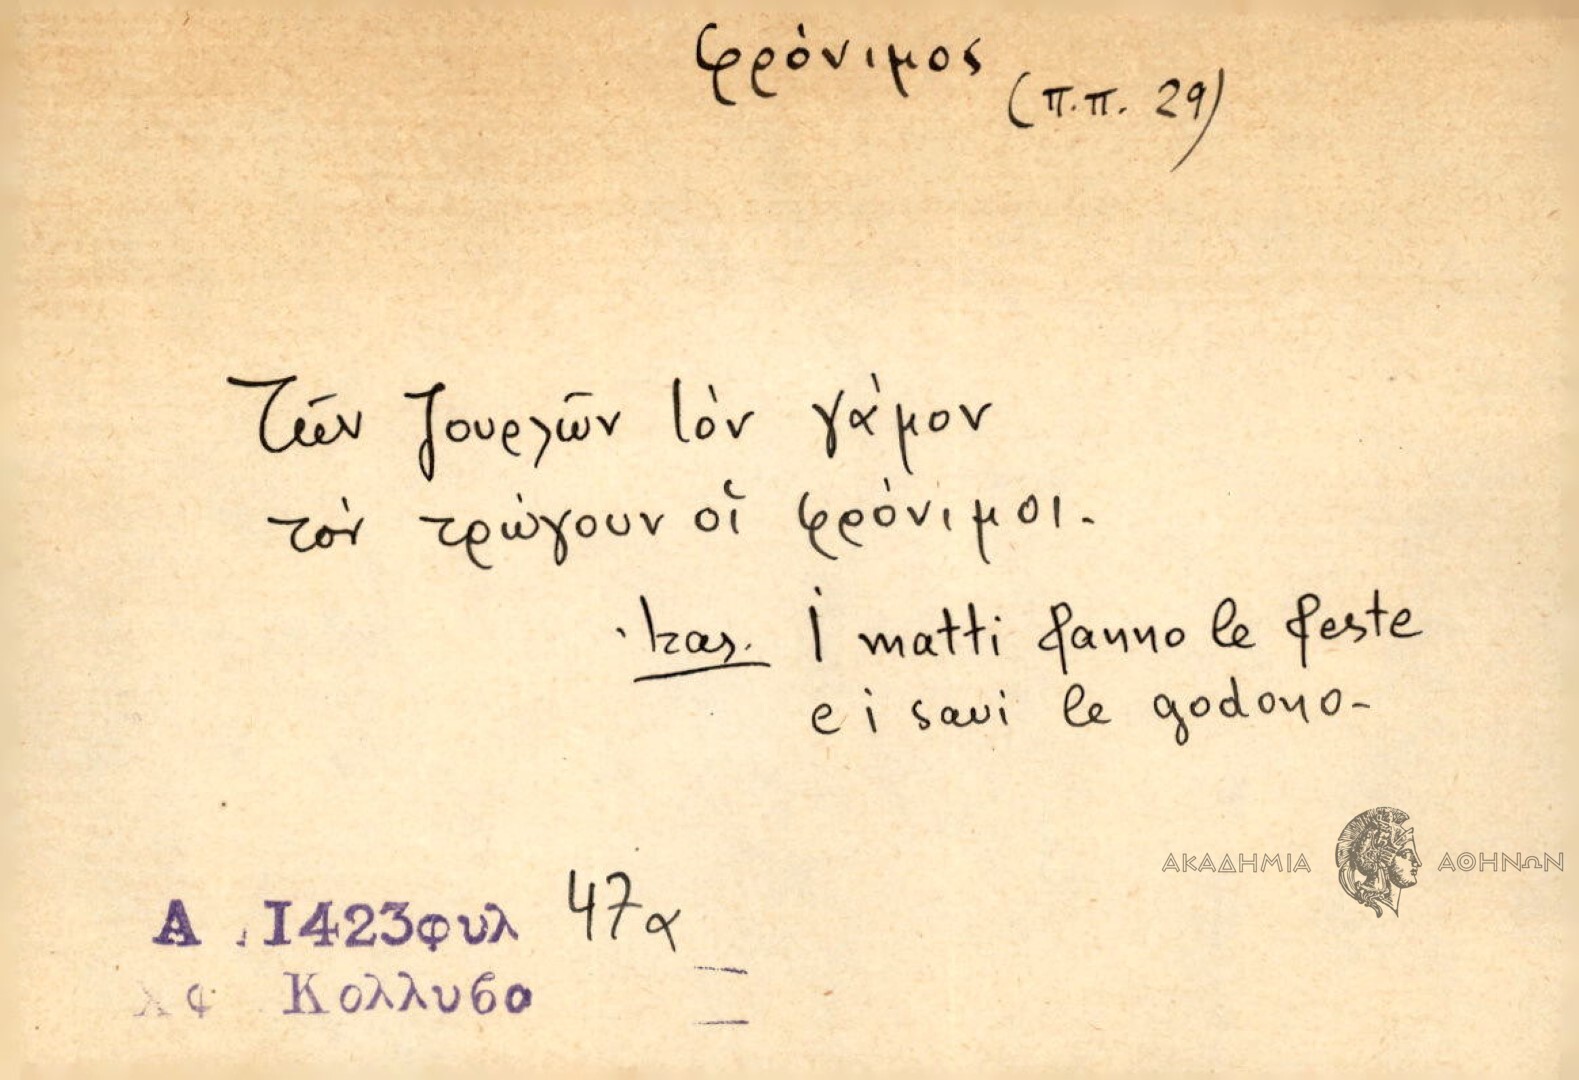 φρόνιμος
(π.π. 29)
Τῶν ζουρλῶν τὸν γάμον
τὸν τρώγουν οἱ φρόνιμοι.
Ἰταλ. I matti fanno le feste
e i savi le godono-
Α .1423φυλ 47α
Κολλυβα
ΑΚΑΔΗΜΙΑ ΑΘΗΝΩΝ